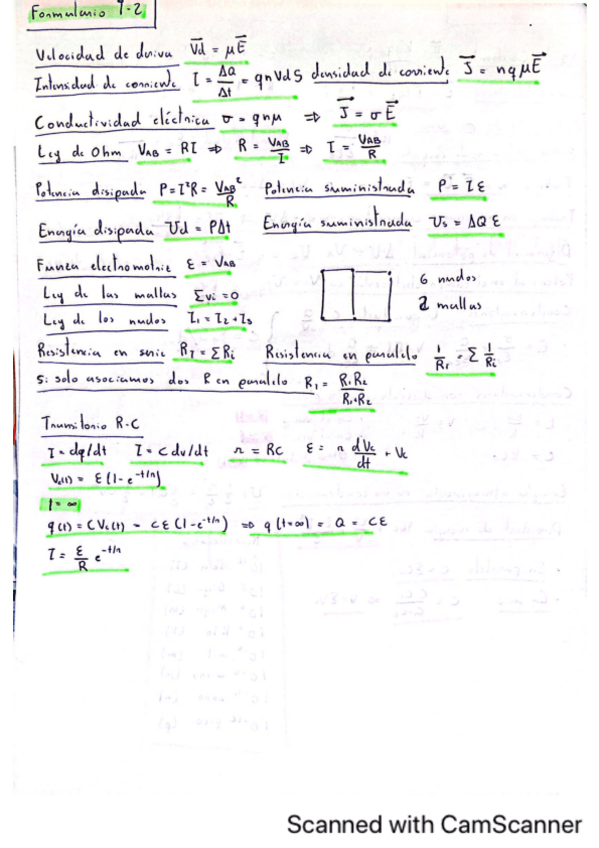 Formulario T-2
Velocidad de deriva Vd = μE
Intensidad de corriente I = ΔQ/Δt = qnVdS densidad de corriente J = nqμE
Conductividad eléctrica σ = qnμ ⇒ J = σE
Ley de Ohm VAB = RI ⇒ R = VAB/I ⇒ I = VAB/R
Potencia disipada P = I²R = VAB²/R Potencia suministrada P = Iε
Energía disipada Ud = PΔt Energía suministrada Us = ΔQε
Fuerza electromotriz ε = VAB
Ley de las mallas Σvi = 0
Ley de los nudos I₁ = I₂ + I₃
6 nudos
2 mallas
Resistencia en serie RT = ΣRi Resistencia en paralelo 1/RT = Σ 1/Ri
Si solo asociamos dos R en paralelo RT = R₁R₂/R₁+R₂
Transitorio R-C
I = dq/dt I = C dv/dt τ = RC ε = τ dVc/dt + Vc
Vc(t) = ε(1-e^-t/τ)
t = ∞
q(t) = CVc(t) = Cε(1-e^-t/τ) ⇒ q(t=∞) = Q = Cε
I = ε/R e^-t/τ
Scanned with CamScanner